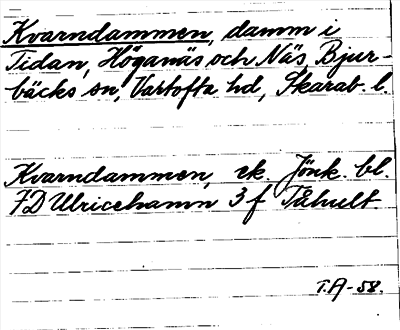 Kvarndammen, damm i
Tidan, Höganäs och Näs, Bjur-
bäcks sn, Vartofta hd, Skarab. l.
Kvarndammen, ek. Jönk. bl.
7D Ulricehamn 3 f Tåhult.
T.A-58.